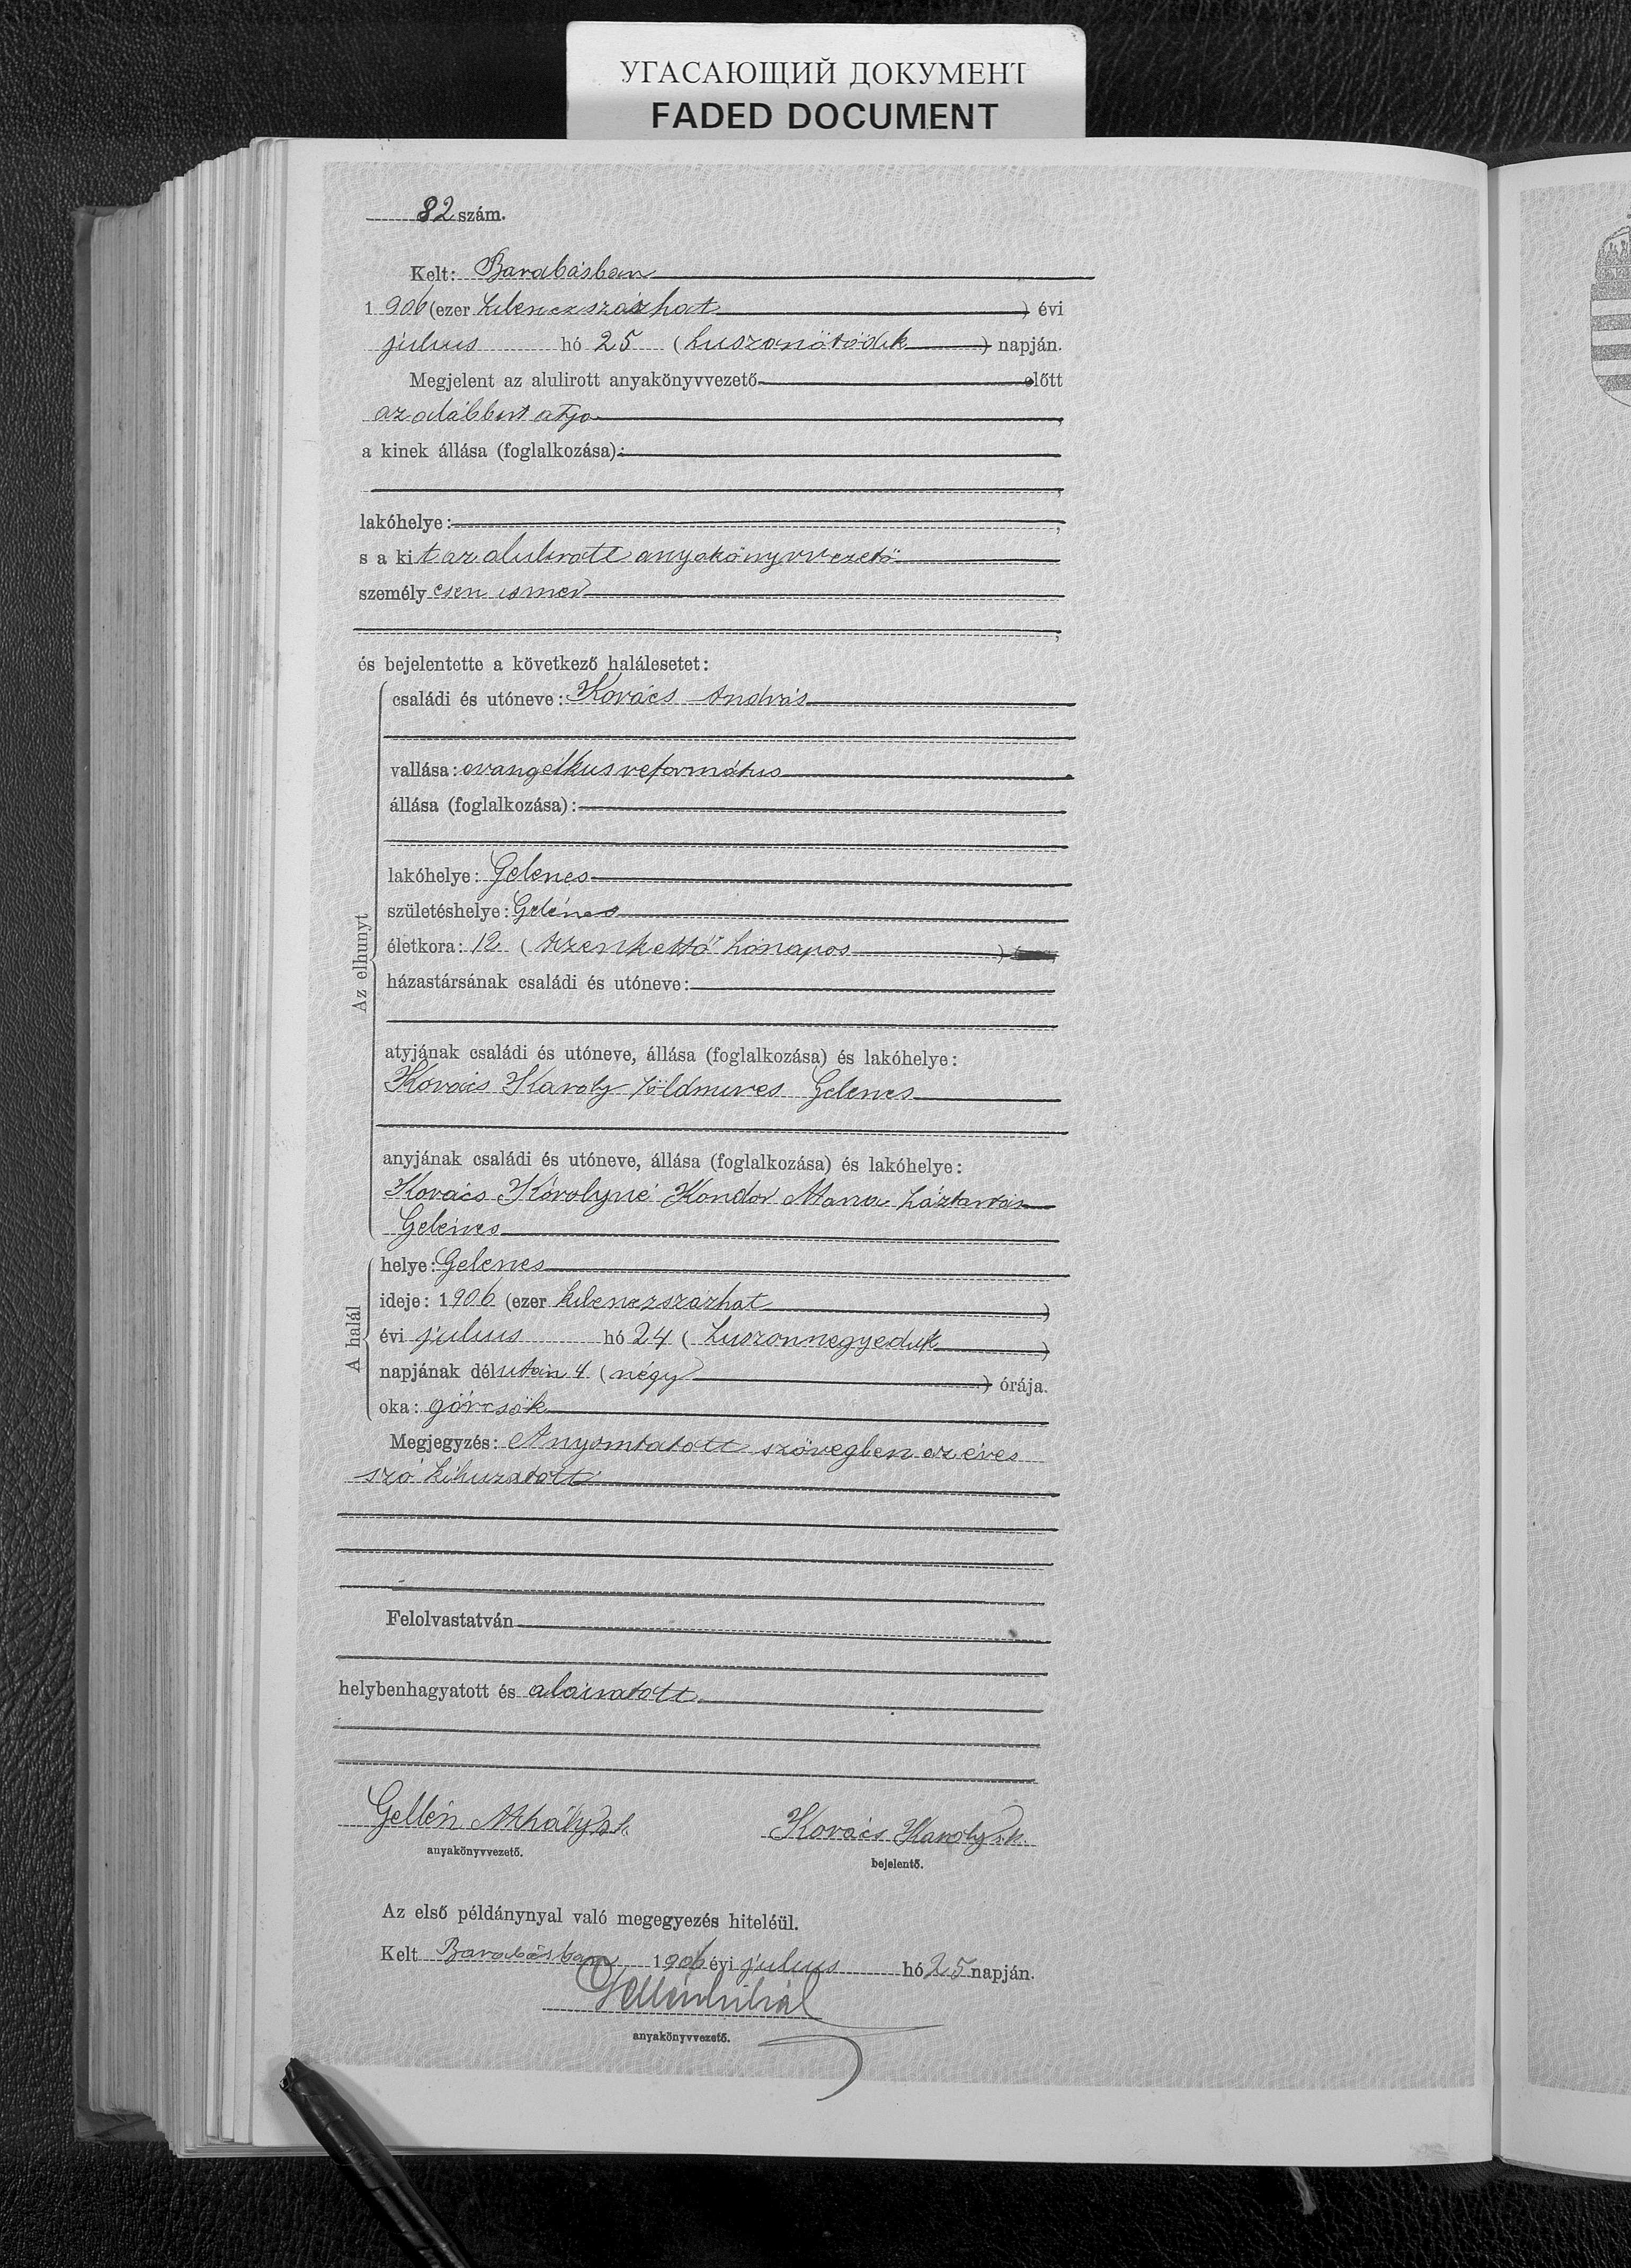 УГАСАЮЩИЙ ДОКУМЕНТ
FADED DOCUMENT
82 szám.
Kelt: Barabásban
1906 (ezer kilenczszázhat) évi
julius hó 25 (huszonötödik) napján.
Megjelent az alulirott anyakönyvvezető előtt
az alábbirt atyja,
a kinek állása (foglalkozása):
lakóhelye:
s a kit az alulirott anyakönyvvezető
személyesen ismer
és bejelentette a következő halálesetet:
Az elhunyt
családi és utóneve: Kovács András
vallása: evangelikus református
állása (foglalkozása):
lakóhelye: Gelenes
születéshelye: Gelénes
életkora: 12 (tizenkettő hónapos)
házastársának családi és utóneve:
atyjának családi és utóneve, állása (foglalkozása) és lakóhelye:
Kovács Karoly földmives Gelenes
anyjának családi és utóneve, állása (foglalkozása) és lakóhelye:
Kovács Károlyné Kondor Mária háztartás
Gelénes
A halál
helye: Gelenes
ideje: 1906 (ezer kilenczszázhat)
évi julius hó 24 (huszonnegyedik)
napjának délután 4 (négy) órája.
oka: görcsök
Megjegyzés: A nyomtatott szövegben az éves
szó kihuzatott
Felolvastatván
helybenhagyatott és aláiratott
Gellén Mihály s.k. Kovács Karoly s.k.
anyakönyvvezető. bejelentő.
Az első példánynyal való megegyezés hiteléül.
Kelt Barabásban 1906 évi julius hó 25 napján.
Gellén Mihály
anyakönyvvezető.